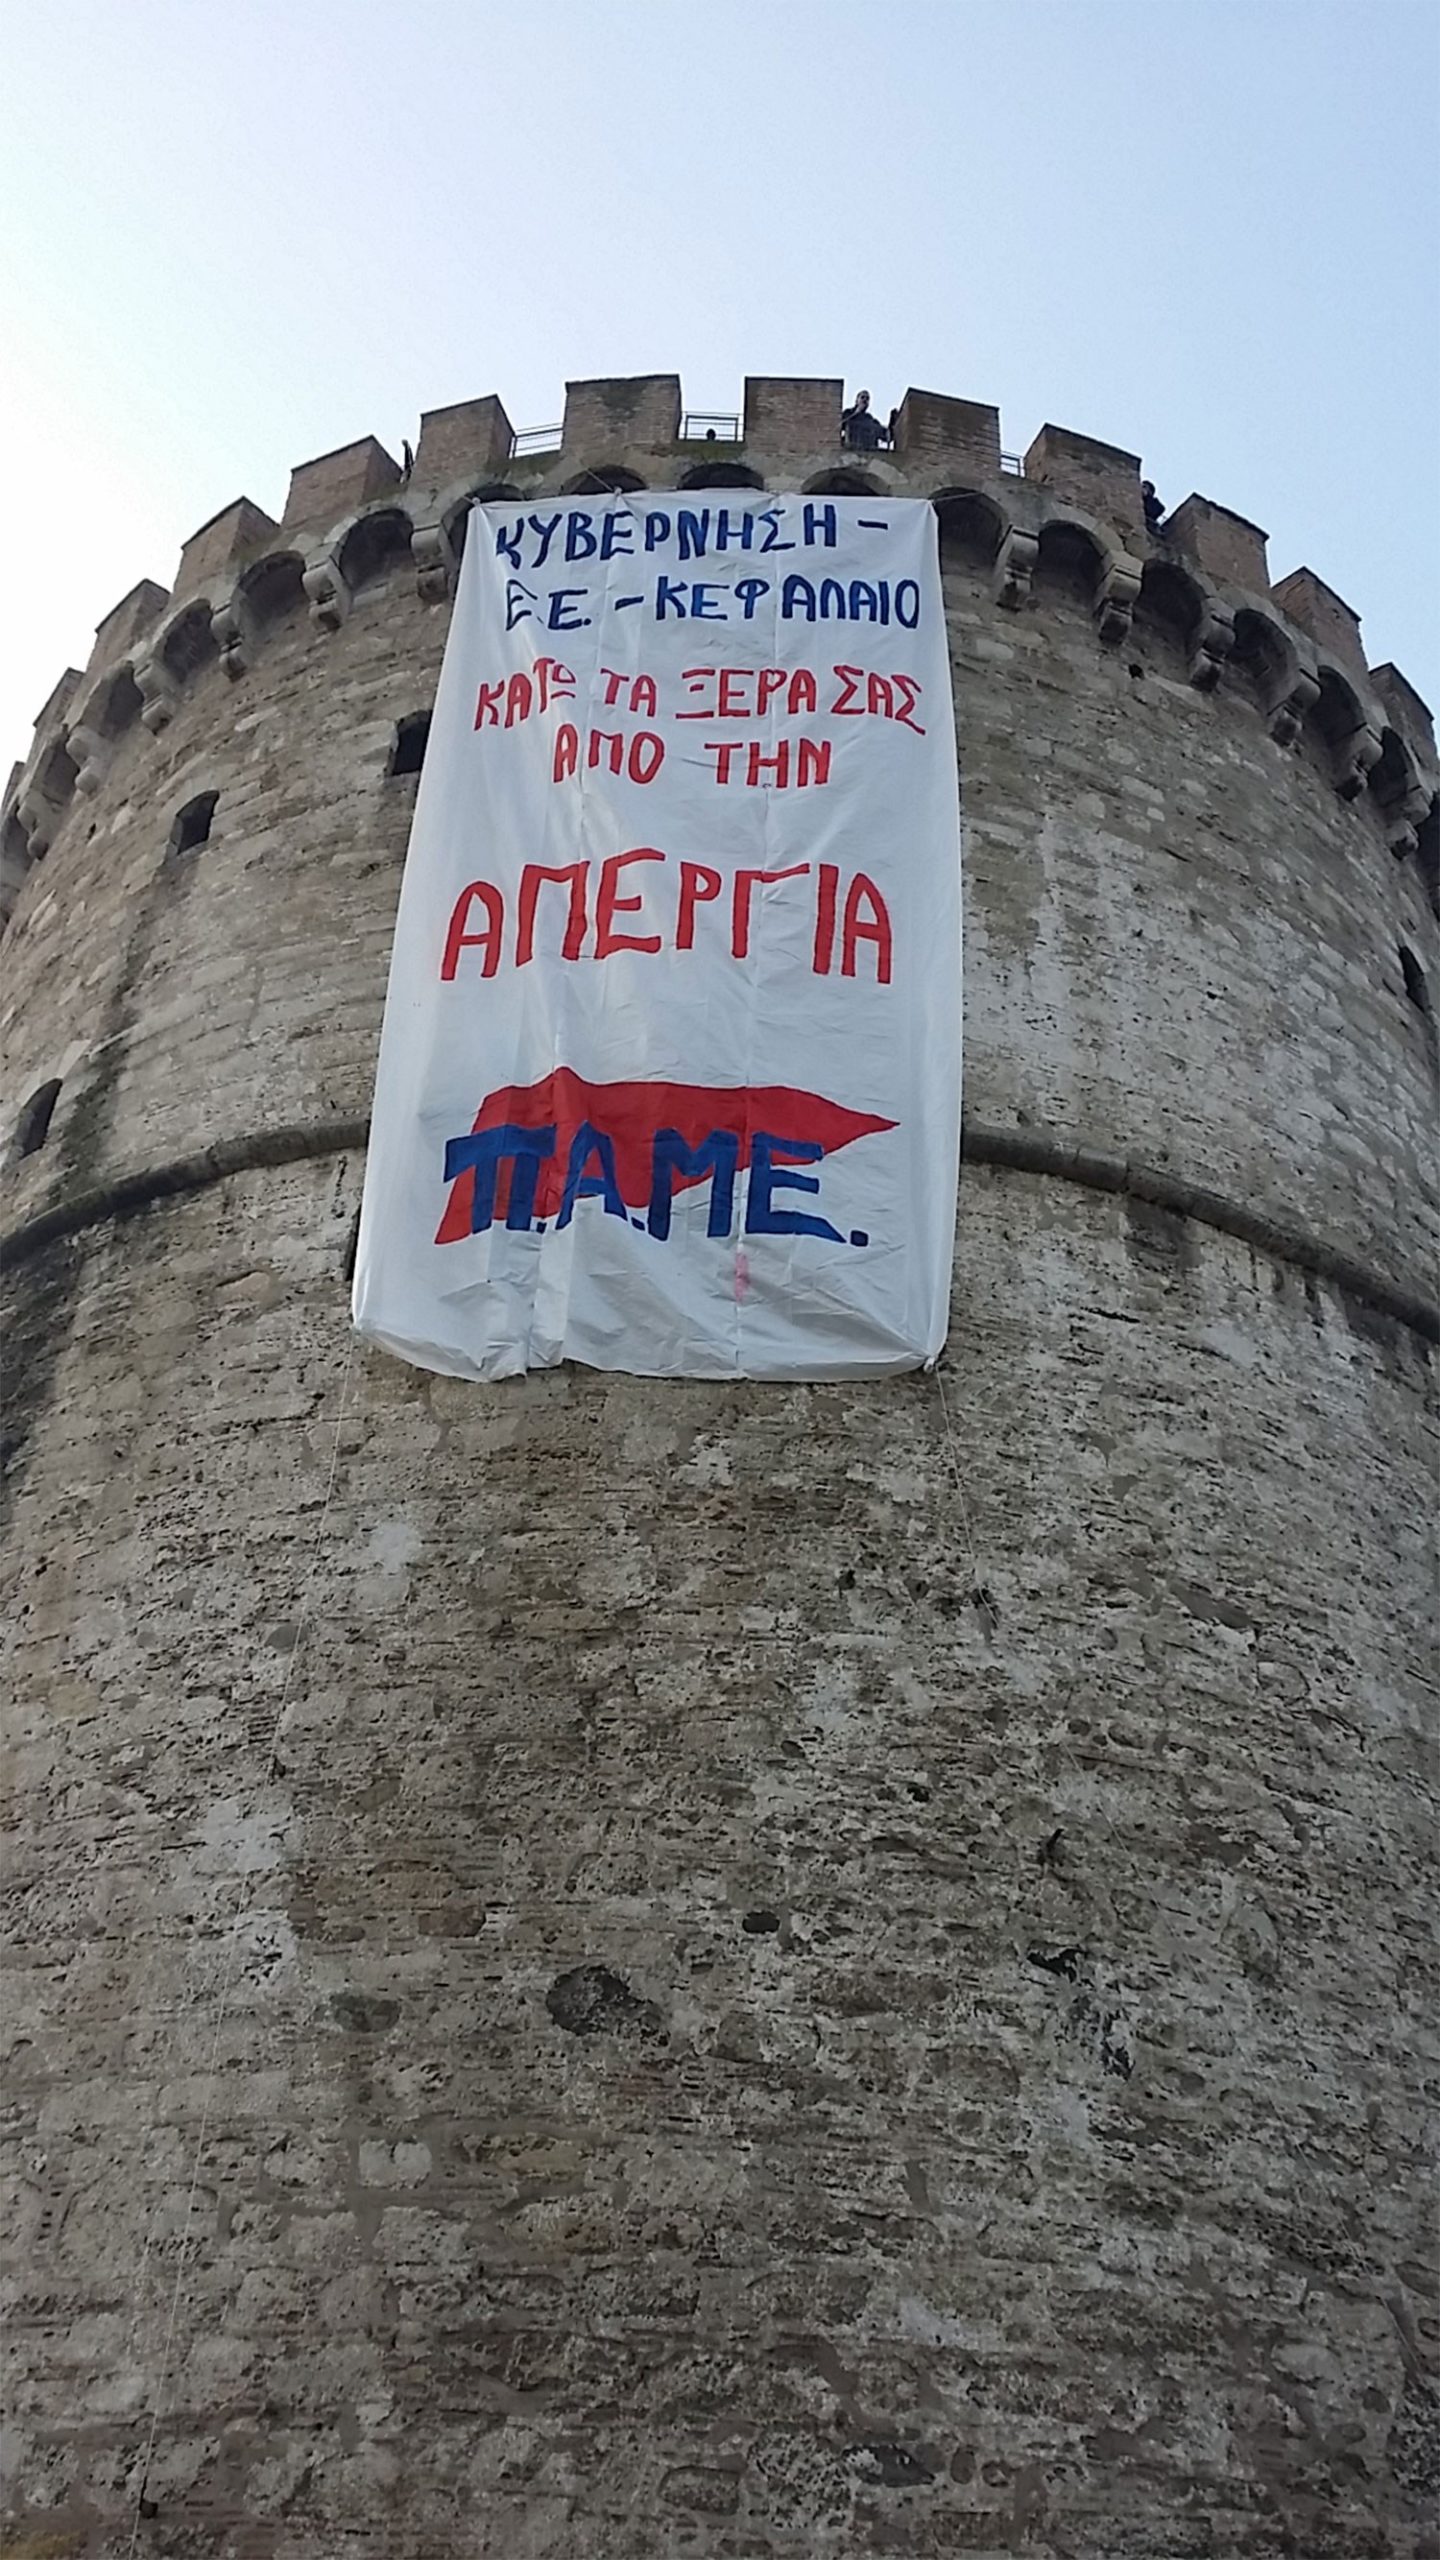 ΚΥΒΕΡΝΗΣΗ -
Ε.Ε. - ΚΕΦΑΛΑΙΟ
ΚΑΤΩ ΤΑ ΞΕΡΑ ΣΑΣ
ΑΠΟ ΤΗΝ
ΑΠΕΡΓΙΑ
Π.Α.ΜΕ.